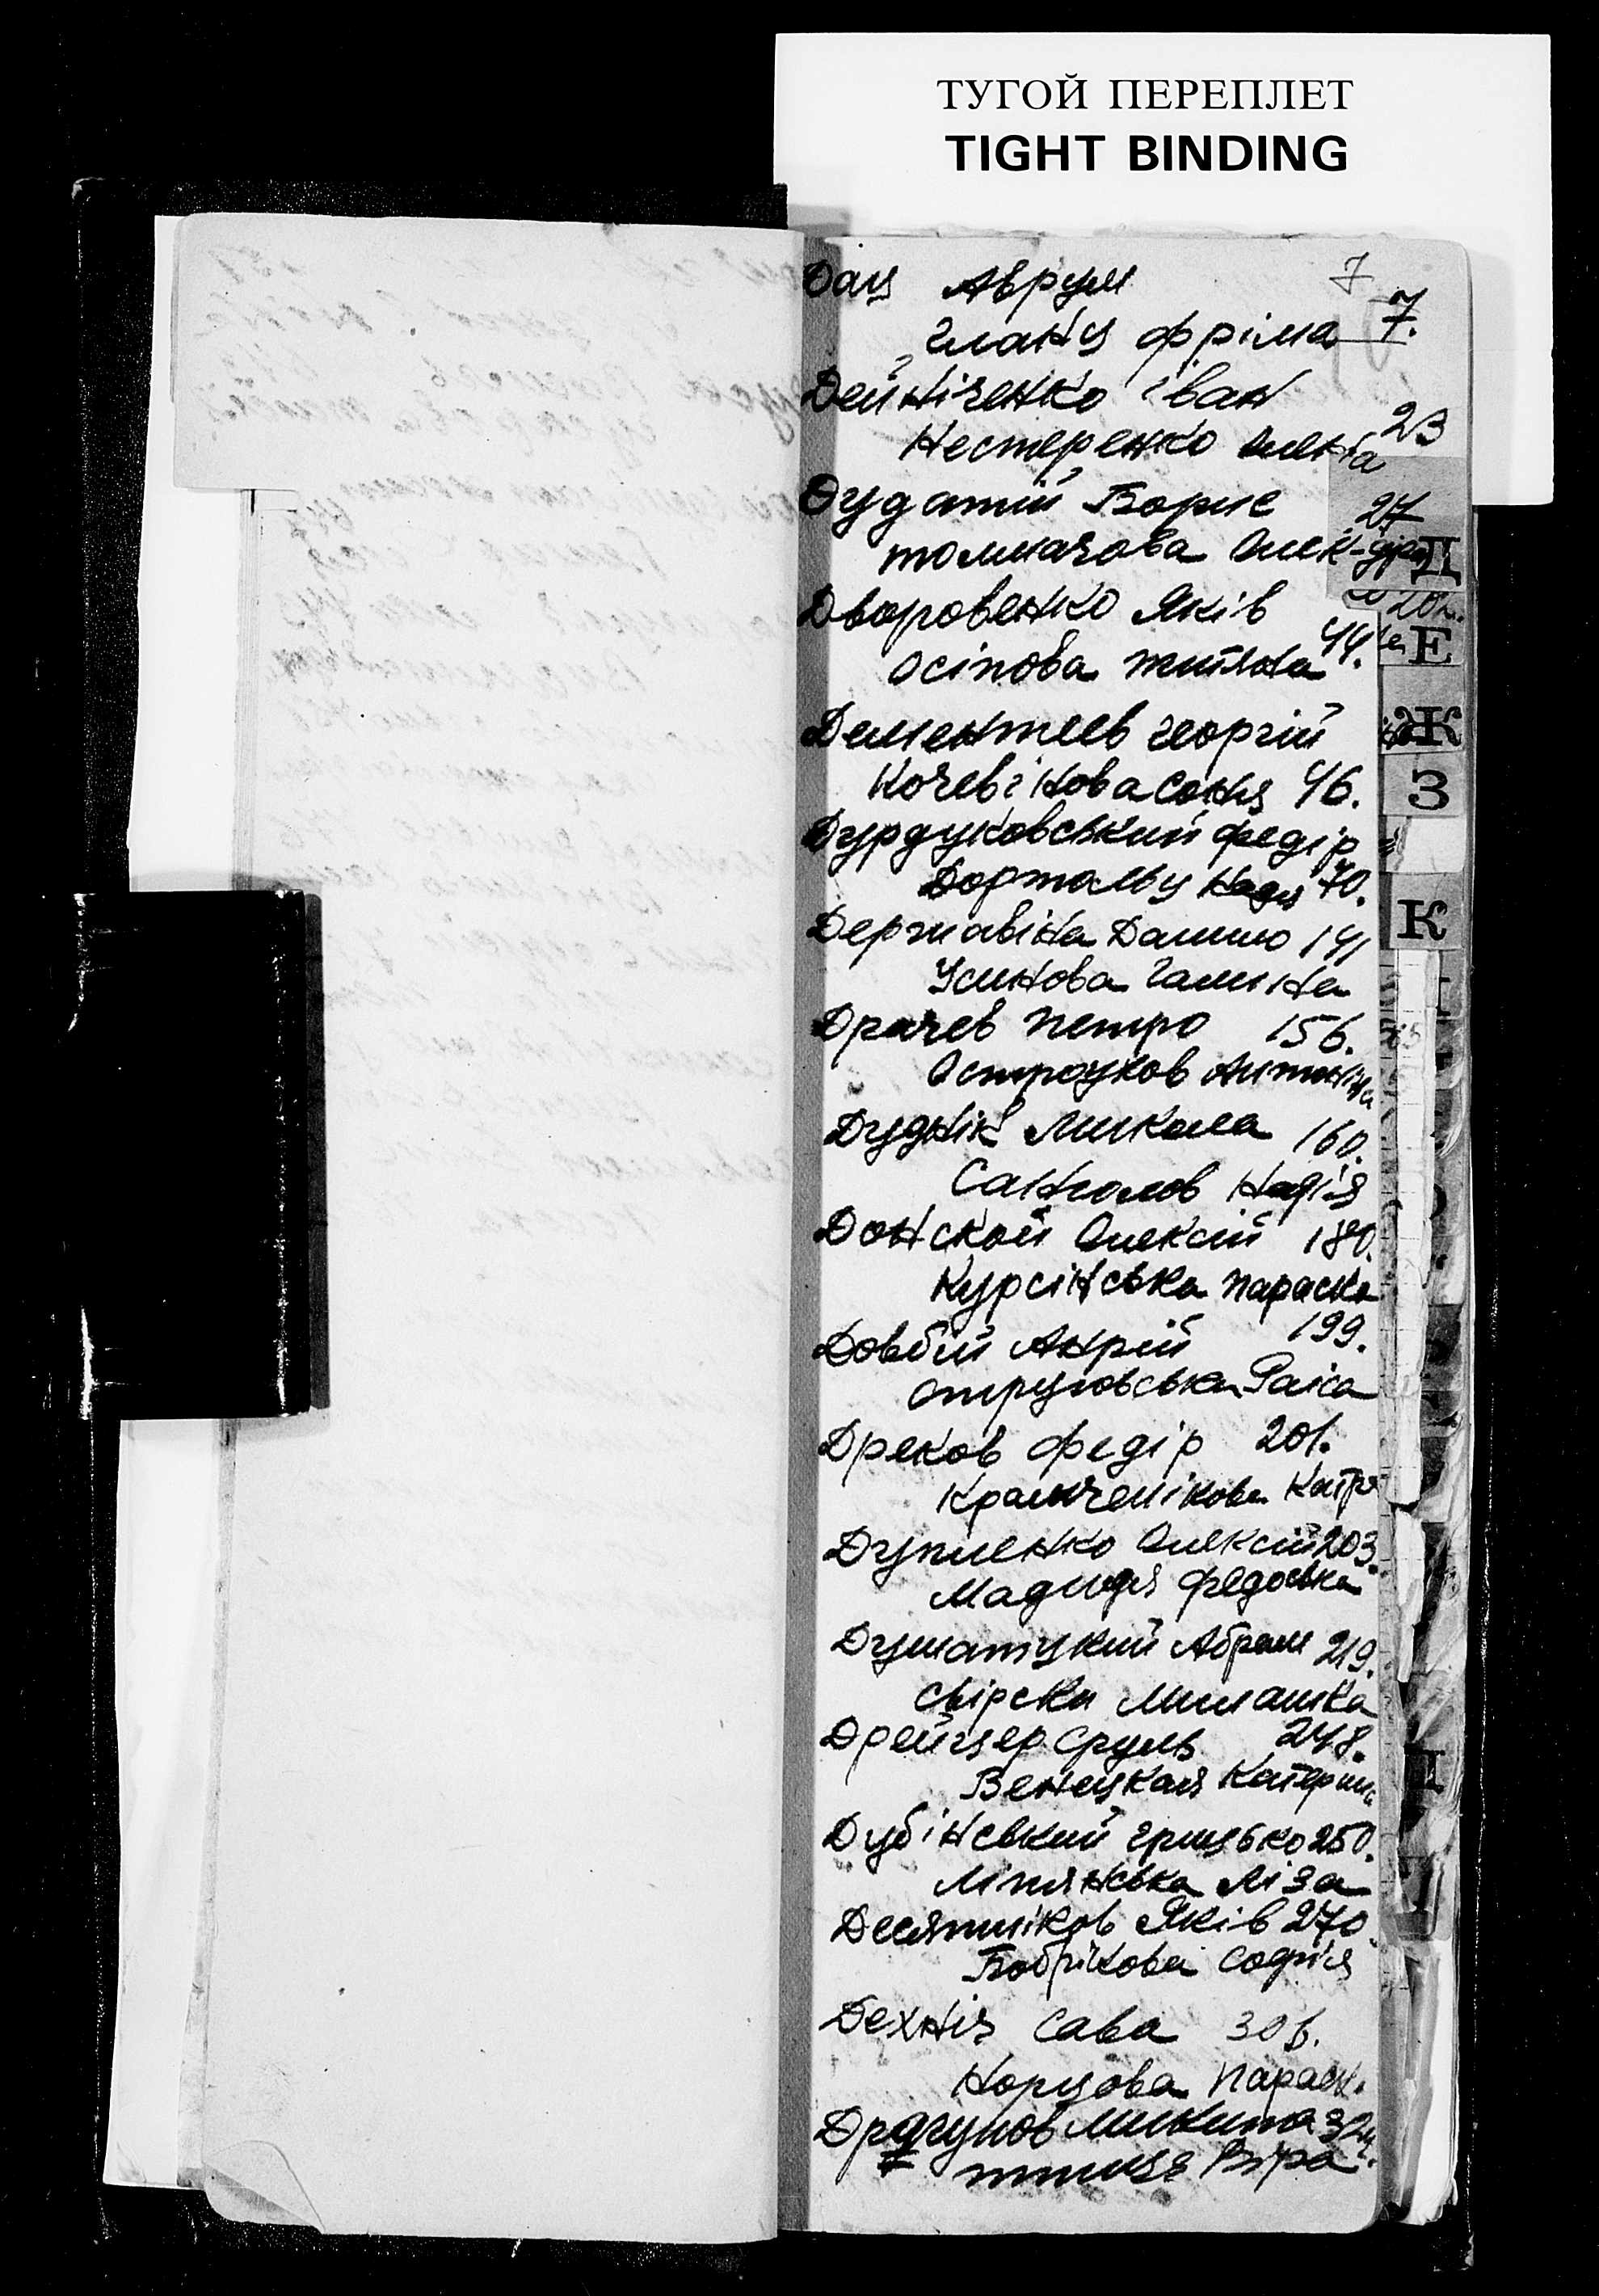 ТУГОЙ ПЕРЕПЛЕТ
TIGHT BINDING
7
Дац Аврум
Гланц Фріма 7.
Дейніченко Іван
23
Нестеренко Олена
Дудатій Борис 27
Толмачова Олек-дра
Д
Дворовенко Яків
44.
Е
Осіпова Тетяна
Дементеев Георгій
Ж
Кочевінова Соня 46.
З
Дурдуковський Федір
Надя 70.
К
Державіна Данило 141
Усинова Галина
Драчев Петро 156.
Остроухов
Дуднік Микола 160.
Надія
Донской Олексій 180.
Курсінська Параска
199.
Довбій Анрій
Раїса
Дреков Федір 201.
Катря
Дупленко Олексій 203.
Федоська
Думатцкий Абрам 219.
Свірска Милашка
Дрейзер Сруль 248.
Венецкая Катерина
Дубінський Грицько 250.
Ліпянська Ліза
Десятніков Яків 270.
Бобрікова Софія
Дехнія Сава 306.
Норцова Параск.
Драгунов Микита 324.
Віра